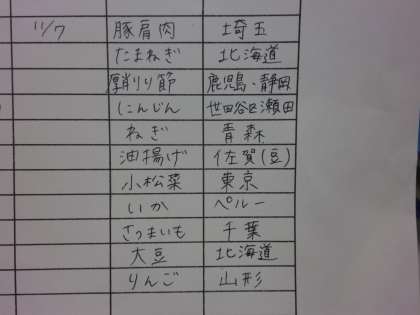 11/7 豚肩肉 埼玉
たまねぎ 北海道
厚削り節 鹿児島・静岡
にんじん 世田谷区瀬田
ねぎ 青森
油揚げ 佐賀(豆)
小松菜 東京
いか ペルー
さつまいも 千葉
大豆 北海道
りんご 山形